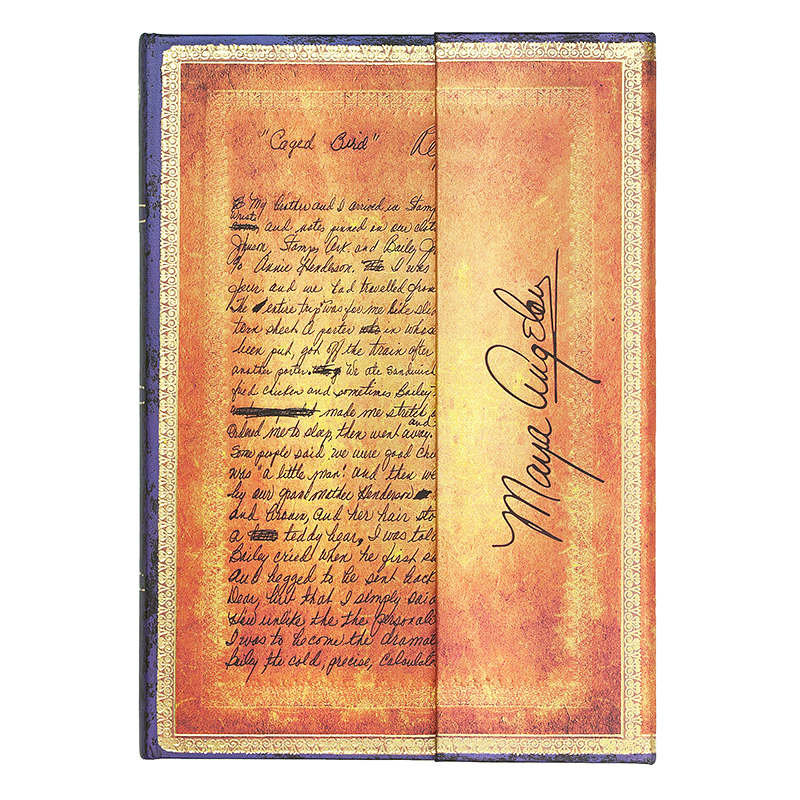 "Caged Bird" Re
My brother and I arrived in Stamp
wrists
and notes pinned in our clot
Johnson, Stamps Ark and Bailey Jo
To Annie Henderson. I was
and we had travelled from
The entire trip was for me like sli
torn sheet. A porter in whose
been put, got off the train after
another porter. We ate sandwich
fried chicken and sometimes Bailey
made me stretch
and
ordered me to sleep, then went away.
Some people said we were good chi
was "a little man". and then we
by our grandmother Henderson
and brown, and her hair sto
a teddy bear, I was tol
Bailey cried when he first s
and begged to be sent back
Dear, but that I simply said
How unlike the the personali
I was to become the dramat
Bailey, the cold, precise, calculato
Maya Angelou